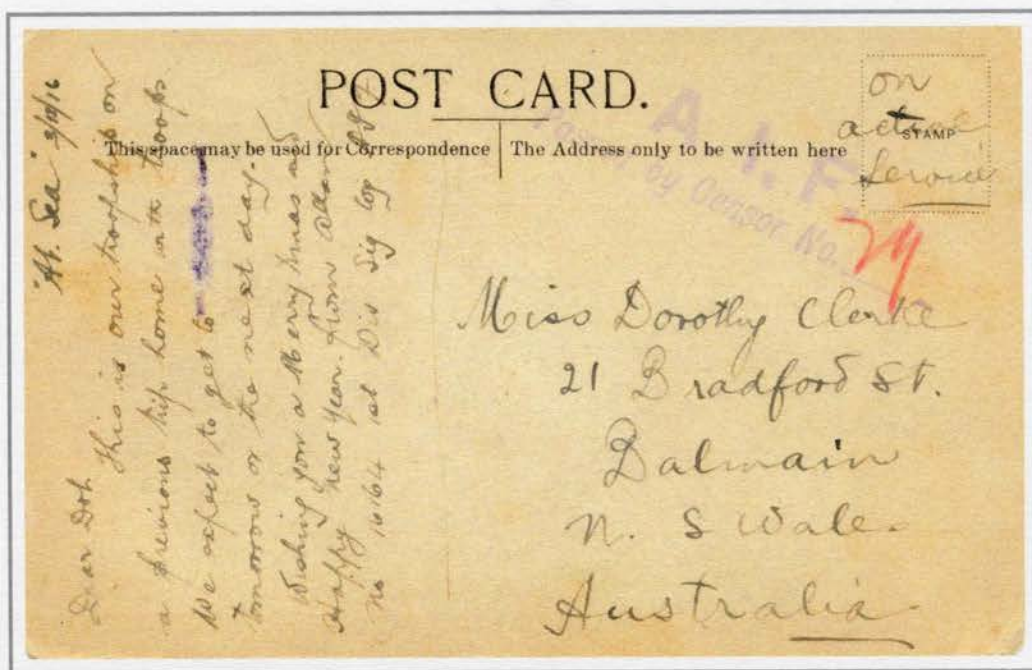 POST CARD.
This space may be used for Correspondence
The Address only to be written here
STAMP
on
active
service
A. I. F.
Passed by Censor No.
"At Sea"
Dear Dot
This is our troopship on
a previous trip home with troops
We expect to get to
tomorrow or the next day.
Wishing you a Merry Xmas and
Happy new year. from Allan
No 16164 1st Dis Sig Coy
Miss Dorothy Clarke
21 Bradford St.
Balmain
N. S Wale
Australia